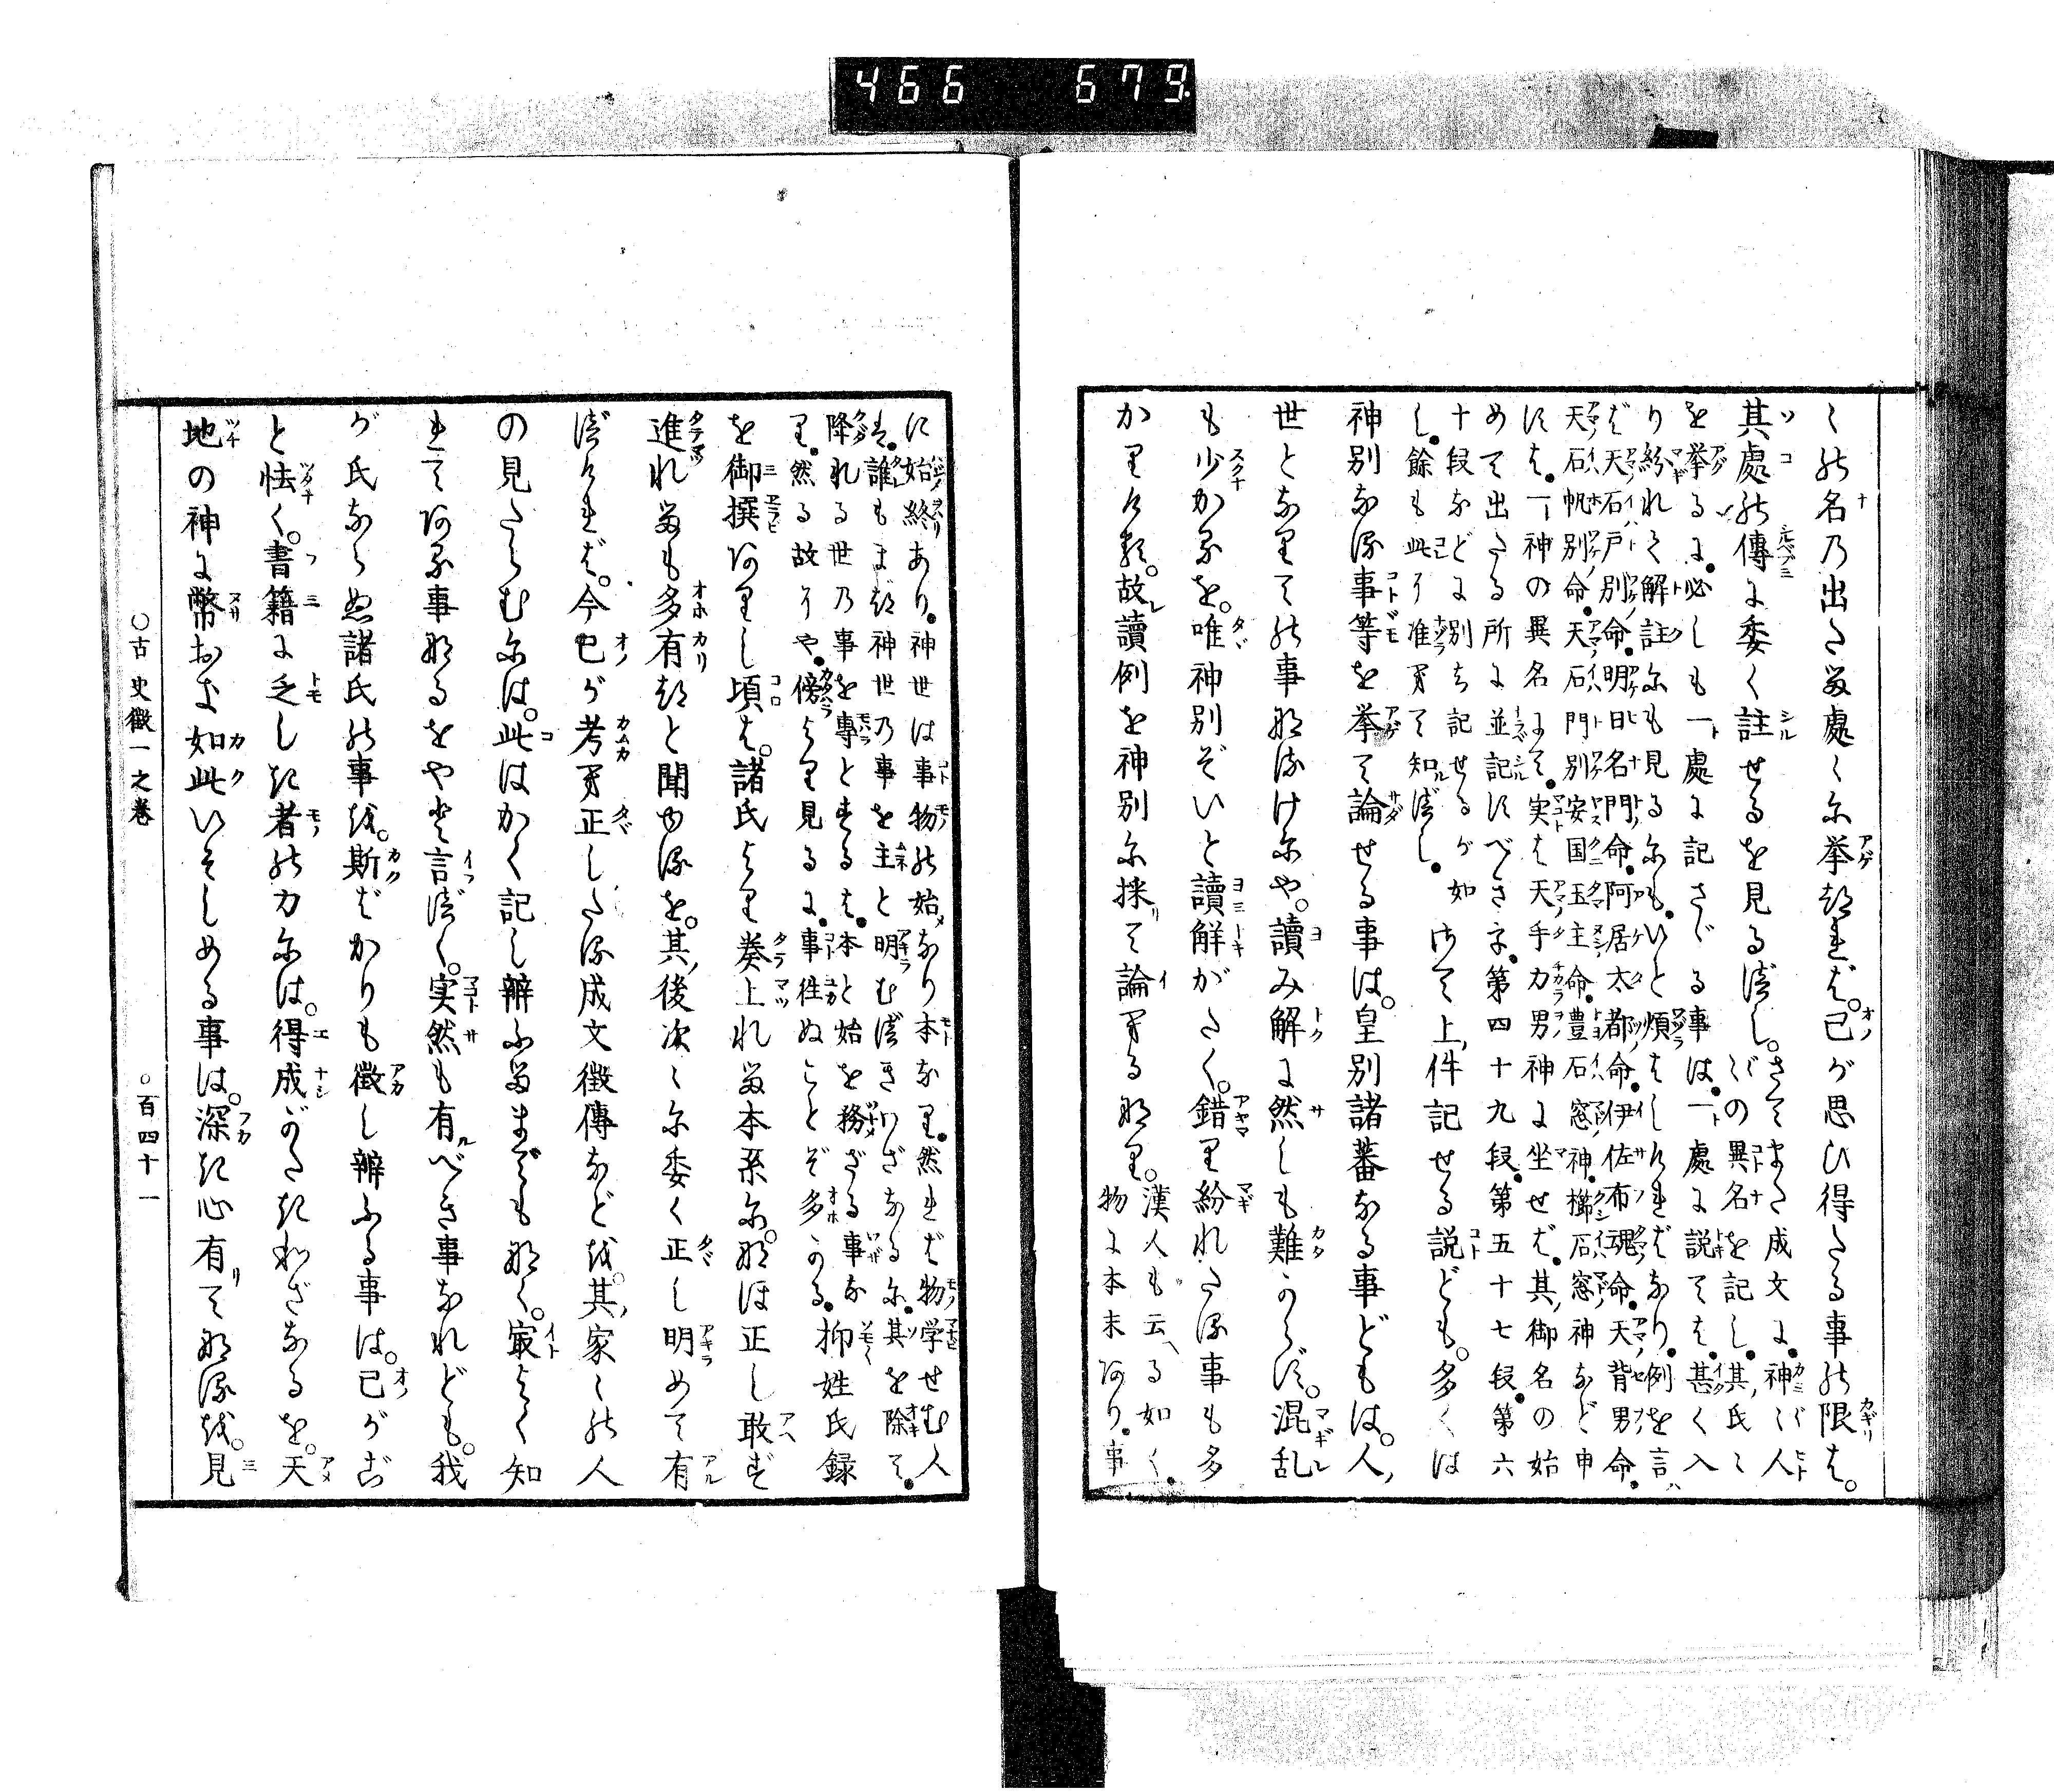 466 679
〻の名乃出たる處〻に挙たれば。己が思ひ得たる事の限は。
其處の傳に委く註せるを見るべし。
さてまた成文に。神〻人
〻の異名を記し。其氏〻
を挙るに。必しも一處に記さゞる事は。一處に説ては。甚く入
り紛れて解註にも見るにも。いと煩はしければなり。例を言
ば天石戸別命。明日名門命。阿居太都命。伊佐布魂命。天背男命。
天石帆別命。天石門別安国玉主命。豊石窓神。櫛石窓神など申
すは。一神の異名にて。実は天手力男神に坐せば。其御名の始
めて出たる所に並記すべきを。第四十九段。第五十七段。第六
十段などに別ち記せるが如
し。餘も此に准へて知べし。
さて上件記せる説ども。多くは
神別なる事等を挙て論せる事は。皇別諸蕃なる事どもは。人
世となりての事なるけにや。讀み解に然しも難からず。混乱
も少かるを。唯神別ぞいと讀解がたく。錯り紛れたる事も多
かりける。故讀例を神別に採て論へるなり。
漢人も云る如く。
物に本末あり。事
に始終あり。神世は事物の始なり本なり。然れば物学せむ人
は。誰もまづ神世乃事を主と明むべきわざなるに。其を除て。
降れる世乃事を専とするは。本と始を務ざる事な
り。然る故にや。傍より見るに。事往ぬことぞ多かる。
抑姓氏録
を御撰ありし頃は。諸氏より奏上れる本系に。なほ正し敢ず
進れるも多有つと聞ゆるを。其後次〻に委く正し明めて有
べければ。今己が考へ正したる成文徴傳などは。其家〻の人
の見たらむには。此はかく記し辨ふるまでも無く。最よく知
れてある事なるをやと言べく。実然も有べき事なれども。我
が氏ならぬ諸氏の事は。斯ばかりも徴し辨ふる事は。己が如
と怯く。書籍に乏しき者の力には。得成がたきわざなるを。天
地の神に幣おき如此いそしめる事は。深き心有てなるは。見
○古史徴一之巻
○百四十一